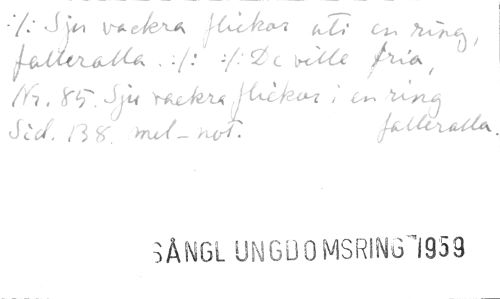 :/: Sju vackra flickor uti en ring,
falleralla. :/: :/: De ville fria,
Nr. 85. Sju vackra flickor i en ring
Sid. 138. mel-not. falleralla.
SÅNGL UNGDOMSRING 1959